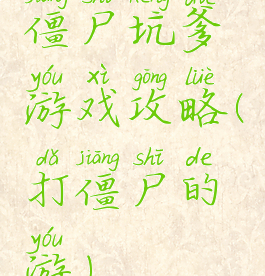 jiāng shī kēng diē
僵尸坑爹
yóu xì gōng lüè
游戏攻略(
dǎ jiāng shī de
打僵尸的
yóu
游)